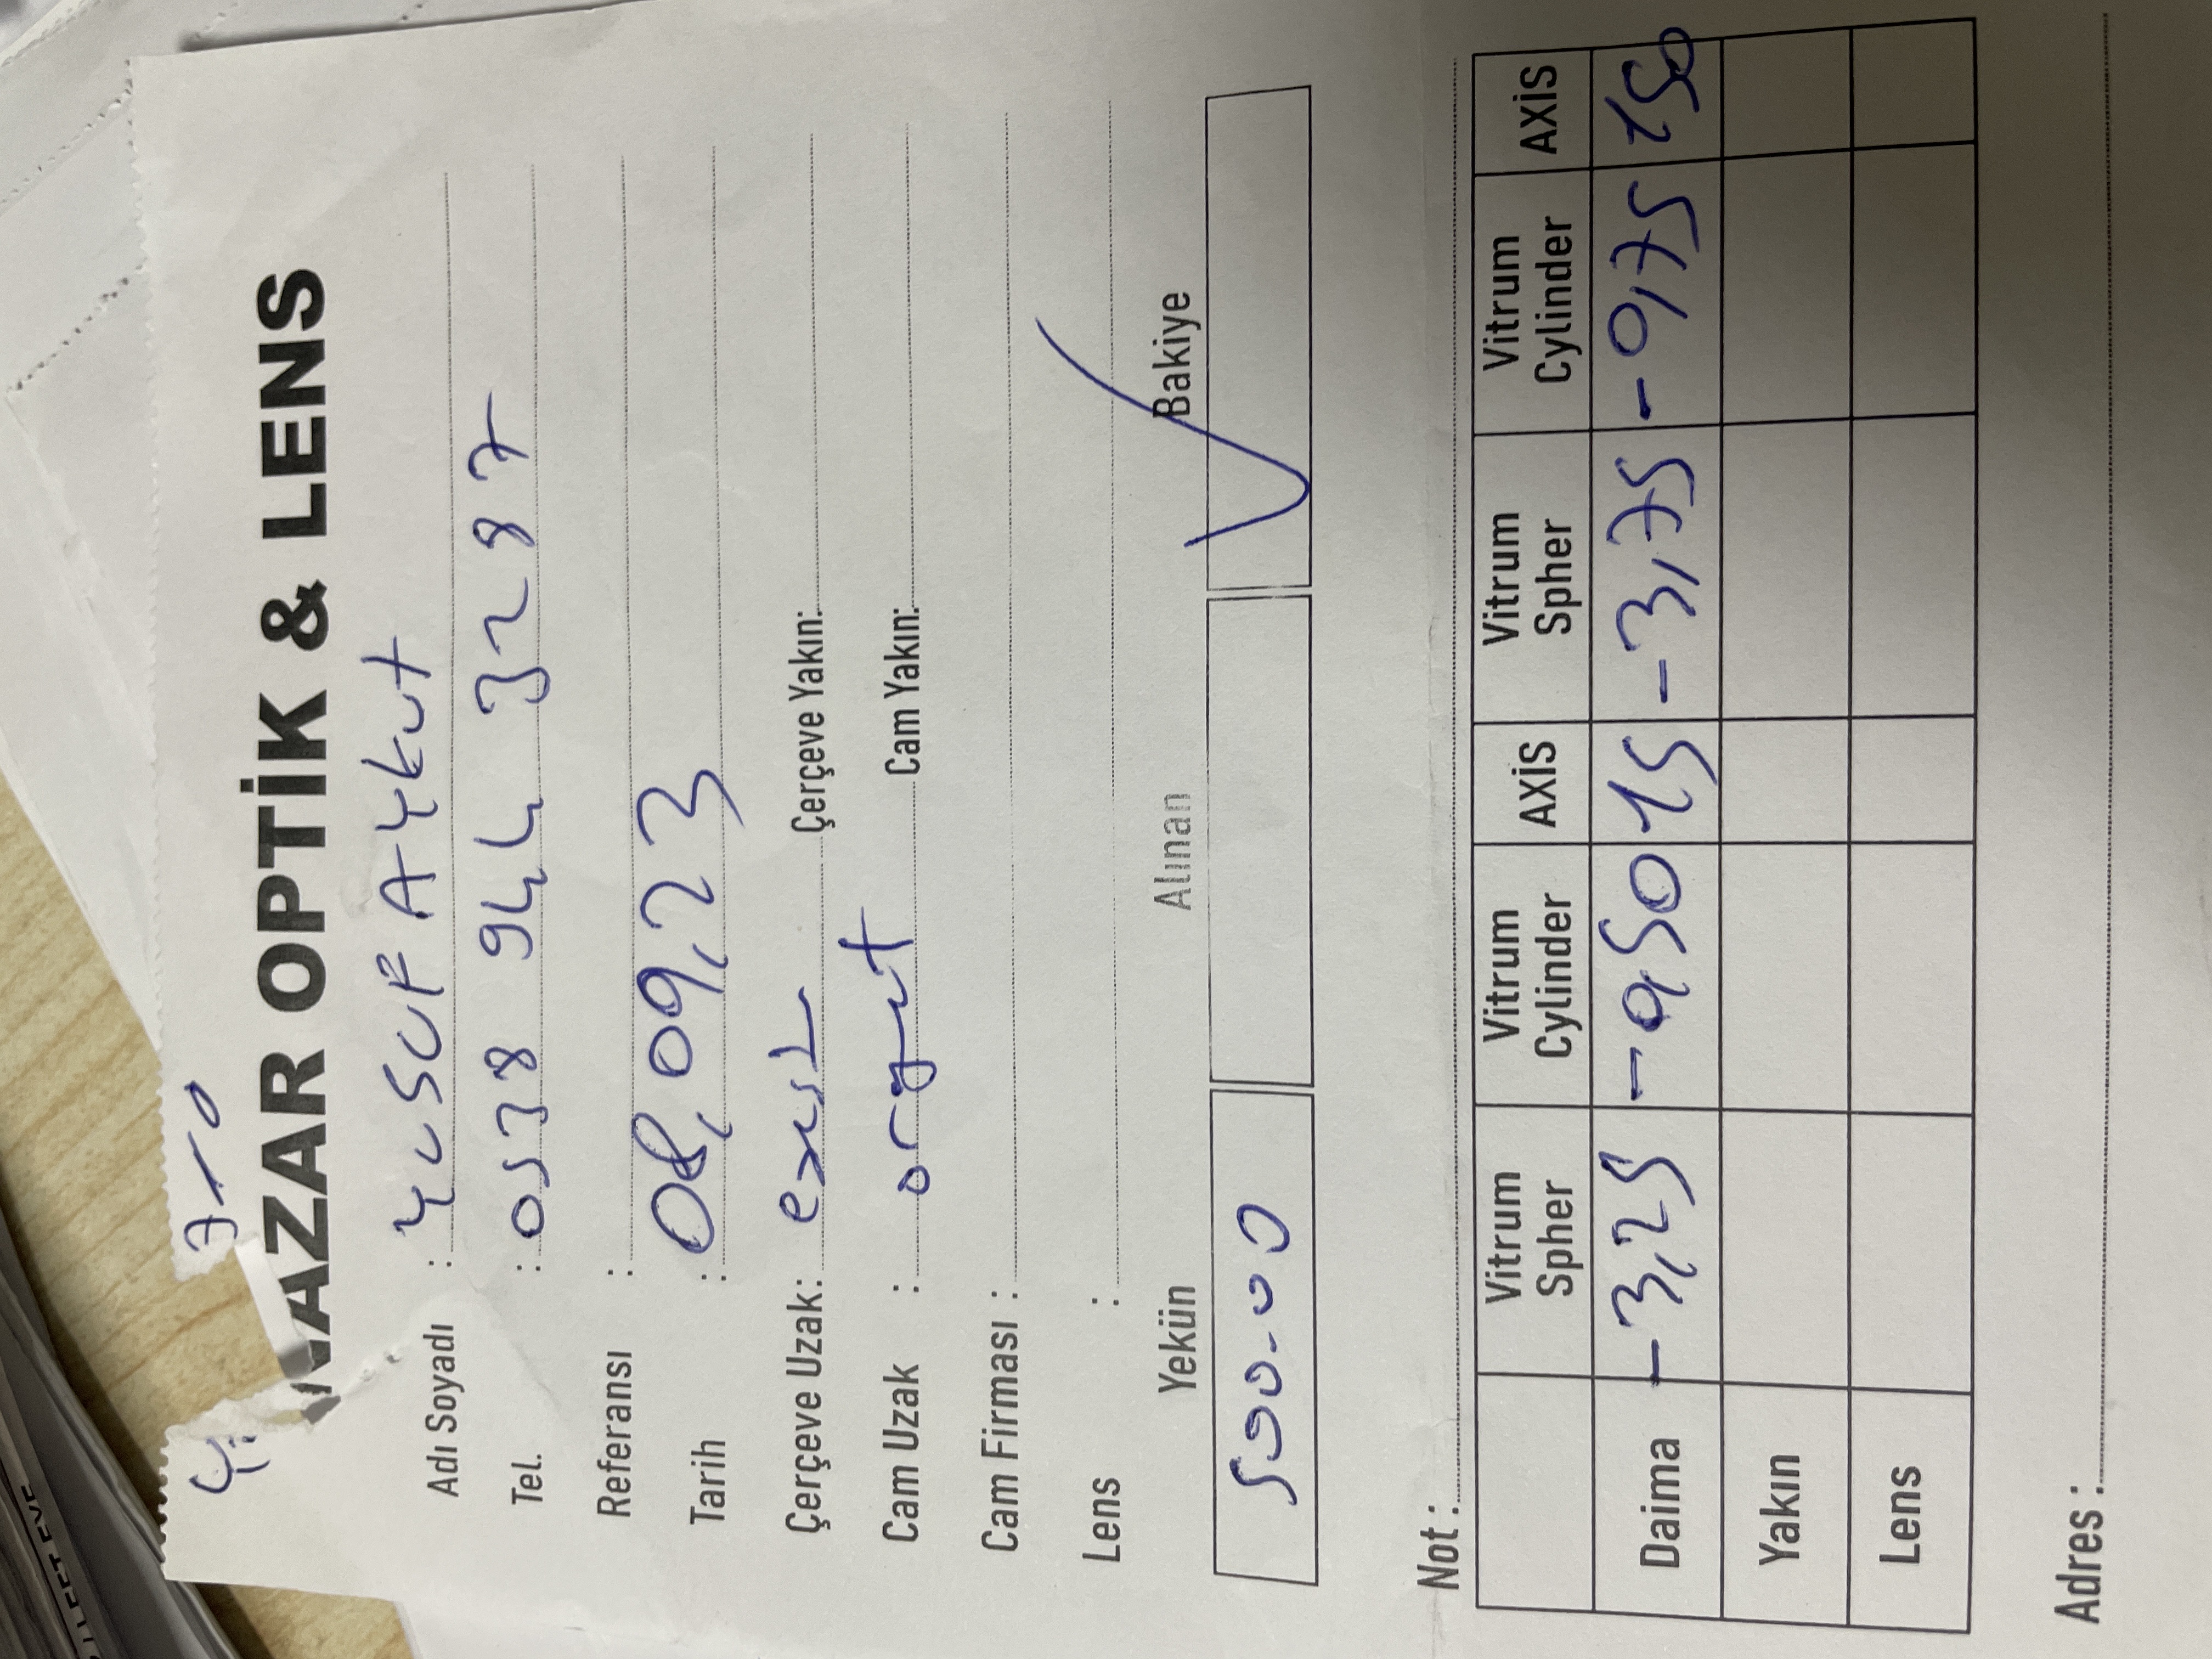 LEFT EYE
NAZAR OPTİK & LENS
Adı Soyadı : YUSUF AYkut
Tel. : 0538 944 3287
Referansı :
Tarih : 08,09,23
Çerçeve Uzak: Çerçeve Yakın:
Cam Uzak : Cam Yakın:
Cam Firması :
Lens :
Yekün Alınan Bakiye
500.00
Not :
Vitrum Spher Vitrum Cylinder AXİS Vitrum Spher Vitrum Cylinder AXİS
Daima -3,25 -0,50 15 -3,75 -0,75 150
Yakın
Lens
Adres :